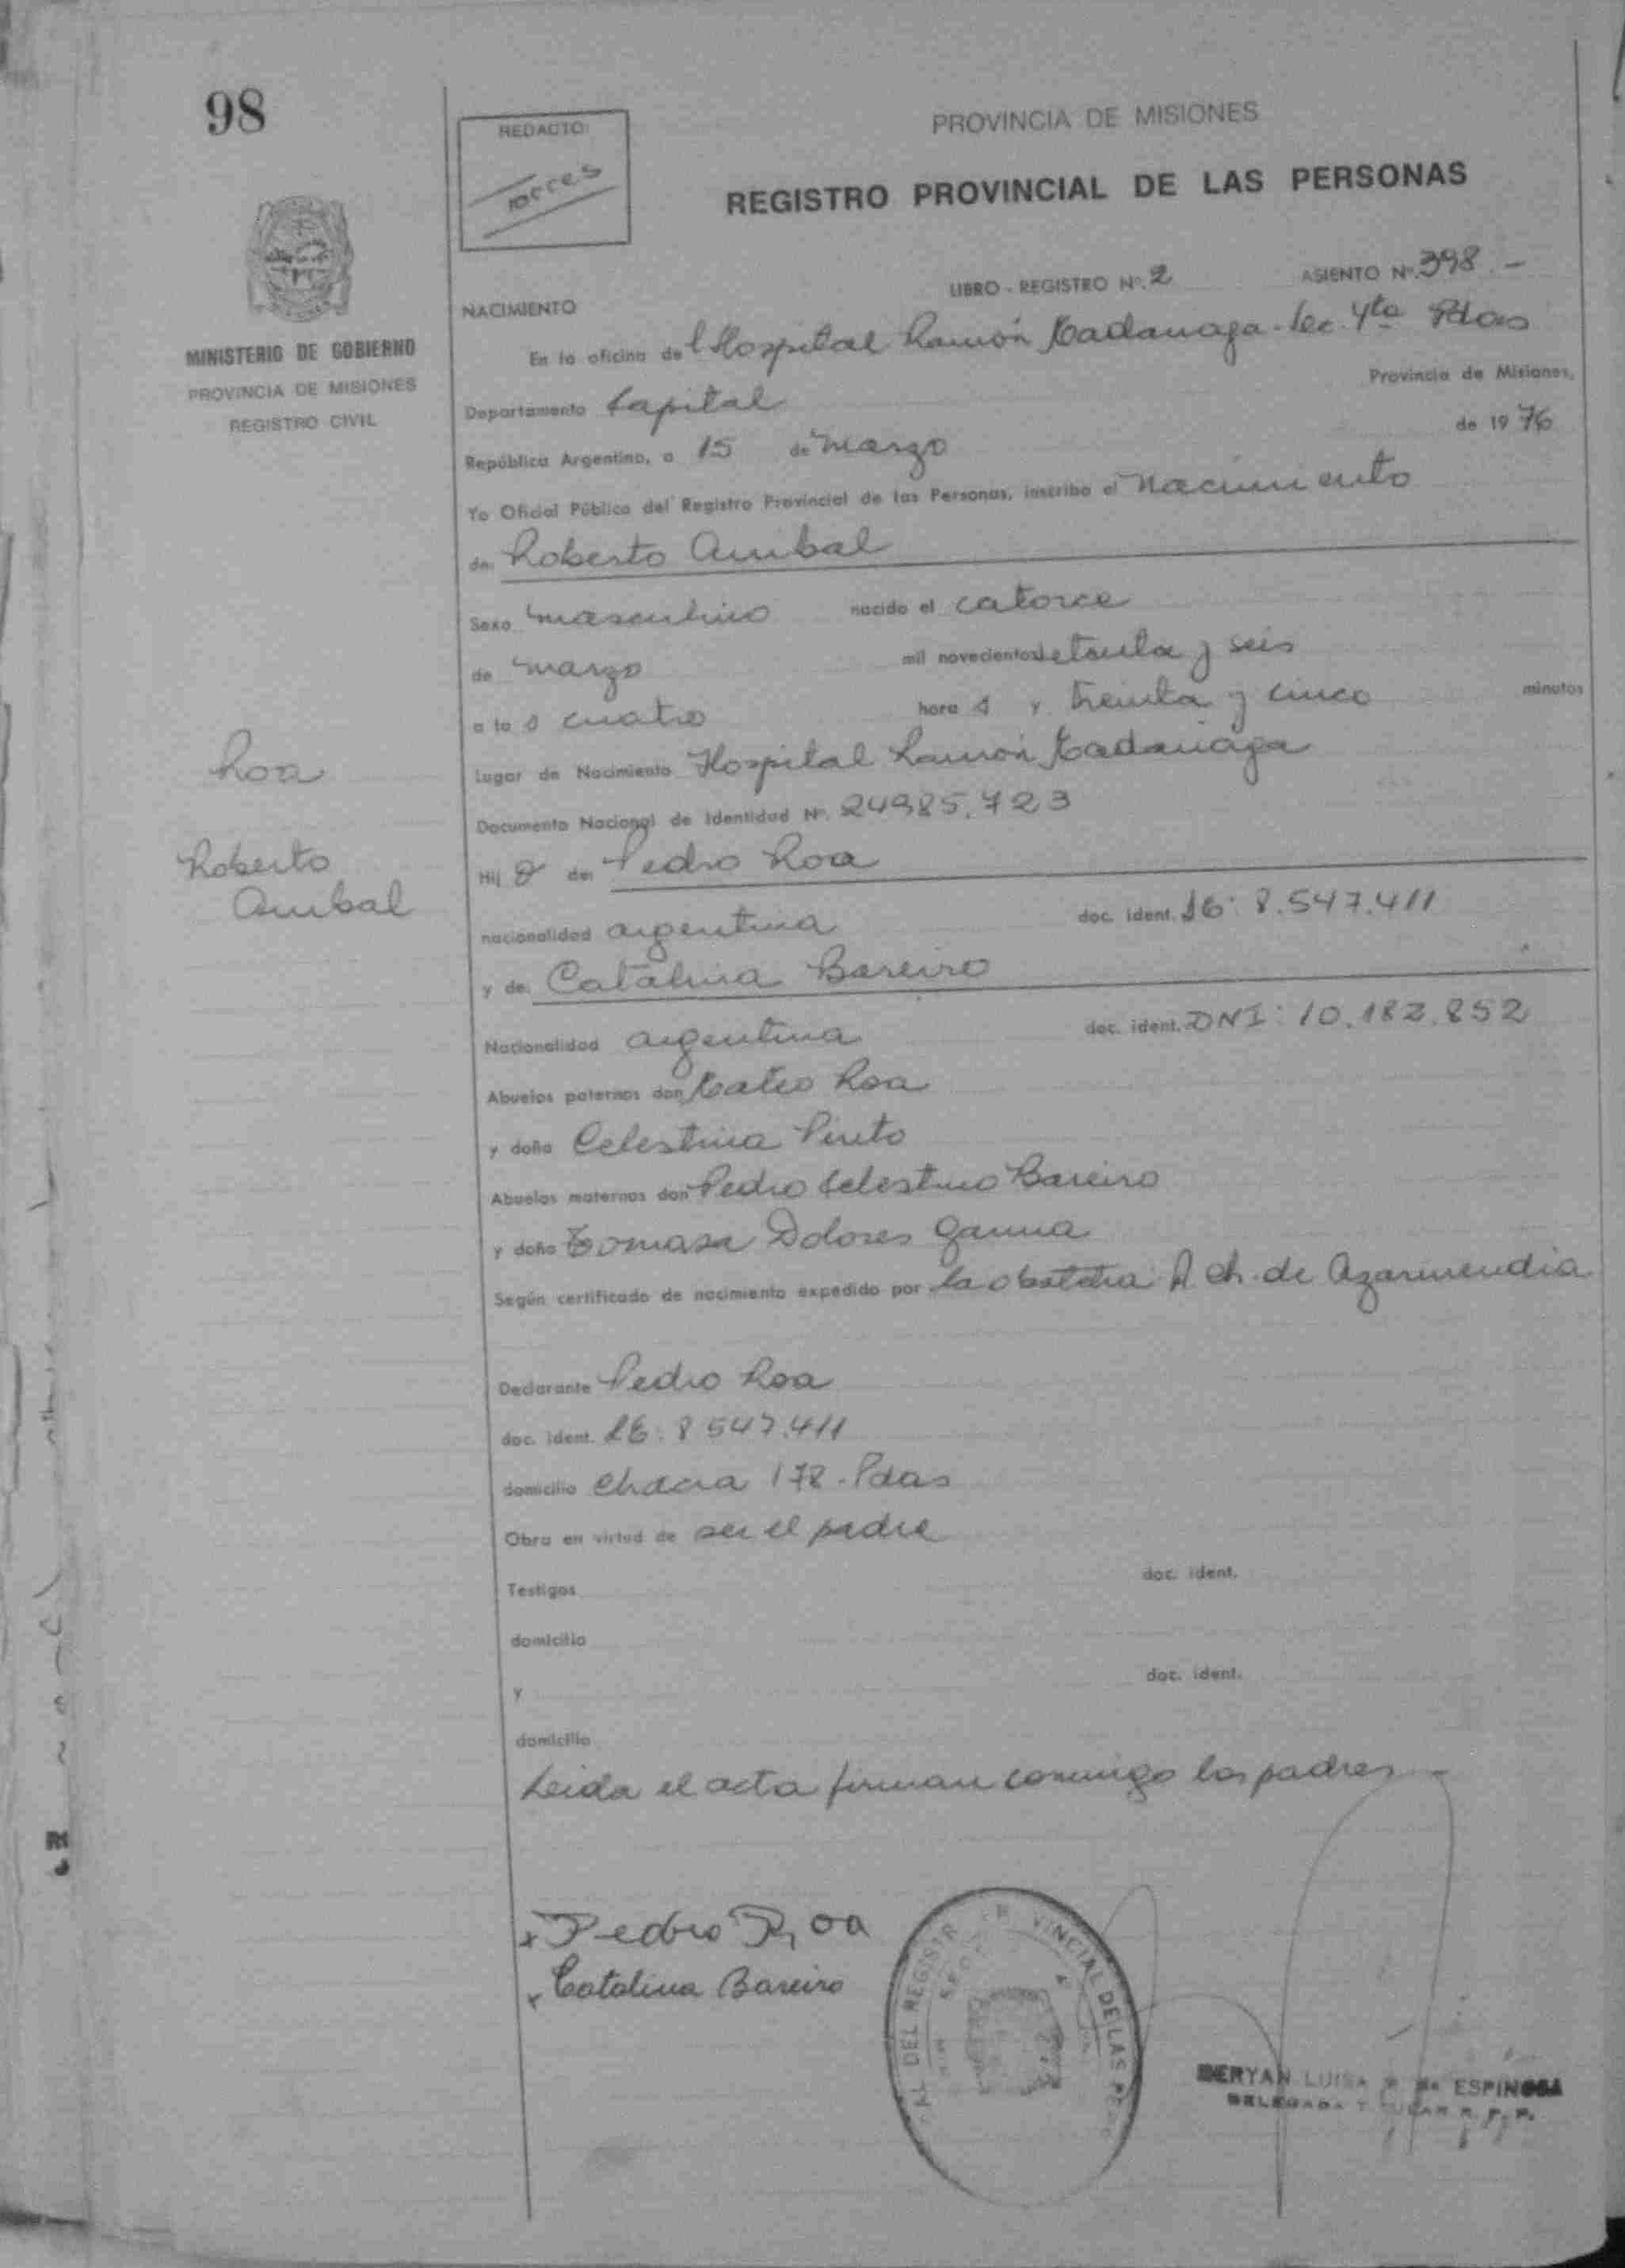 98
REDACTO:
PROVINCIA DE MISIONES
REGISTRO PROVINCIAL DE LAS PERSONAS
MINISTERIO DE GOBIERNO
PROVINCIA DE MISIONES
REGISTRO CIVIL
LIBRO - REGISTRO Nº. 2 ASIENTO Nº. 398.-
NACIMIENTO
En la oficina del Hospital Ramón Madariaga - Sec. 4ta Pdas
Provincia de Misiones,
Departamento Capital
República Argentina, a 15 de Marzo de 1976
Yo Oficial Público del Registro Provincial de las Personas, inscribo el Nacimiento
de: Roberto Anibal
Sexo masculino nacido el catorce
de marzo mil novecientos setenta y seis
a las cuatro horas y treinta y cinco minutos
Lugar de Nacimiento Hospital Ramón Madariaga
Roa
Documento Nacional de Identidad Nº. 24985.723
Roberto
Anibal
Hijo de: Pedro Roa
nacionalidad argentina doc. ident. LE: 8.547.411
y de: Catalina Bareiro
Nacionalidad argentina doc. ident. DNI: 10.182.852
Abuelos paternos don Mateo Roa
y doña Celestina Pinto
Abuelos maternos don Pedro Celestino Bareiro
y doña Tomasa Dolores Gauna
Según certificado de nacimiento expedido por la obstetra A. Ch. de Azarmendia
Declarante Pedro Roa
doc. ident. LE: 8 547.411
domicilio Chacra 178 - Pdas
Obra en virtud de ser el padre
Testigos doc. ident.
domicilio
y doc. ident.
domicilio
Leida el acta firman conmigo los padres -
x Pedro Roa
x Catalina Bareiro
AL DEL REGISTR VINCIAL DE LAS
LUISA ESPINOSA
DELEGADA TITULAR R. P. P.